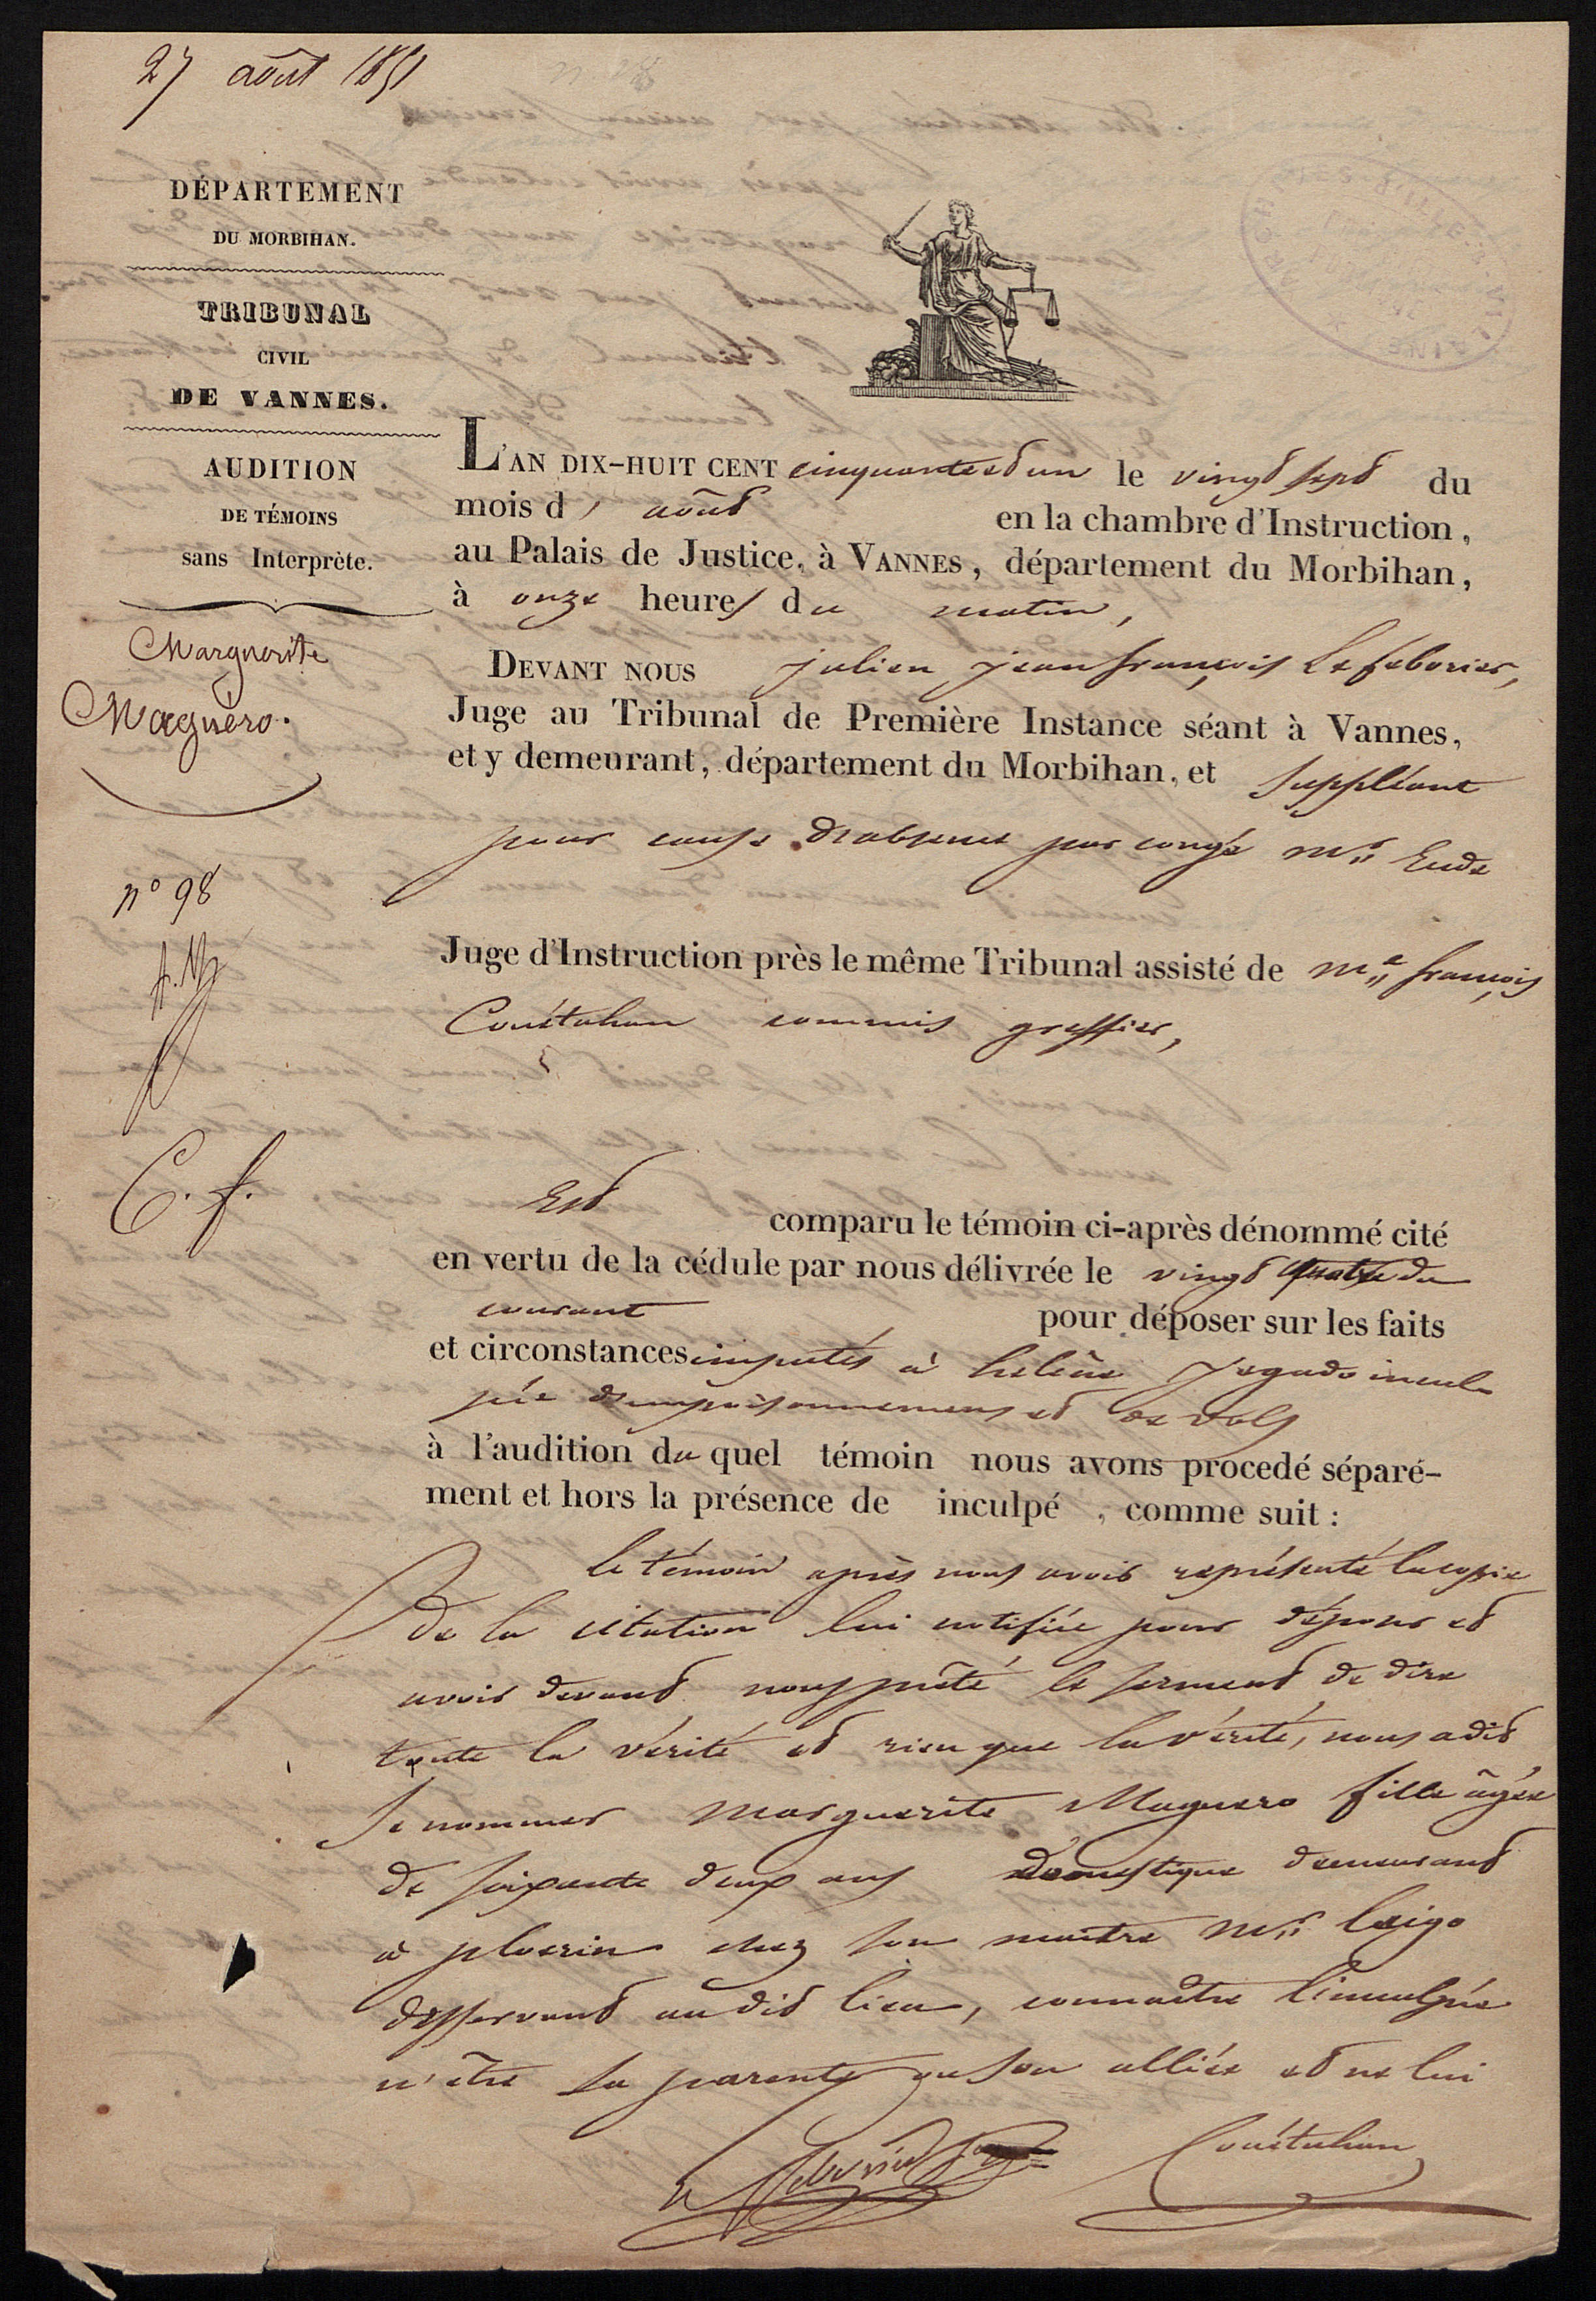 27 août 1851
DÉPARTEMENT
DU MORBIHAN.
TRIBUNAL
CIVIL
DE VANNES.
AUDITION
DE TÉMOINS
sans Interprète.
Marguerite
Maguéro.
n° 98
C. f.
L'AN DIX-HUIT CENT cinquante et un le vingt sept du
mois d' août en la chambre d'Instruction,
au Palais de Justice, à VANNES, département du Morbihan,
à onze heures du matin,
DEVANT NOUS julien jean françois Lefebvrier,
Juge au Tribunal de Première Instance séant à Vannes,
et y demeurant, département du Morbihan, et suppléant
pour cause d'absence par congé Mr. Eude
Juge d'Instruction près le même Tribunal assisté de Me. françois
Couëtuhan commis greffier,
Est
comparu le témoin ci-après dénommé cité
en vertu de la cédule par nous délivrée le vingt quatre du
courant pour déposer sur les faits
et circonstances imputés à helène Jegado incul-
pée d'empoisonnemens et de vols
à l'audition du quel témoin nous avons procedé séparé-
ment et hors la présence de inculpé , comme suit :
le témoin après nous avoir représenté la copie
de la citation lui notifiée pour déposer et
avoir devant nous prêté le serment de dire
toute la vérité et rien que la vérité, nous a dit
se nommer Marguerite Maguero fille âgée
de soixante deux ans domestique demeurant
à ploerin chez son maître Mr. Lorigo
desservant au dit lieu, connaître l'inculpée
n'être sa parente ou son alliée et ne lui
Couëtuhan